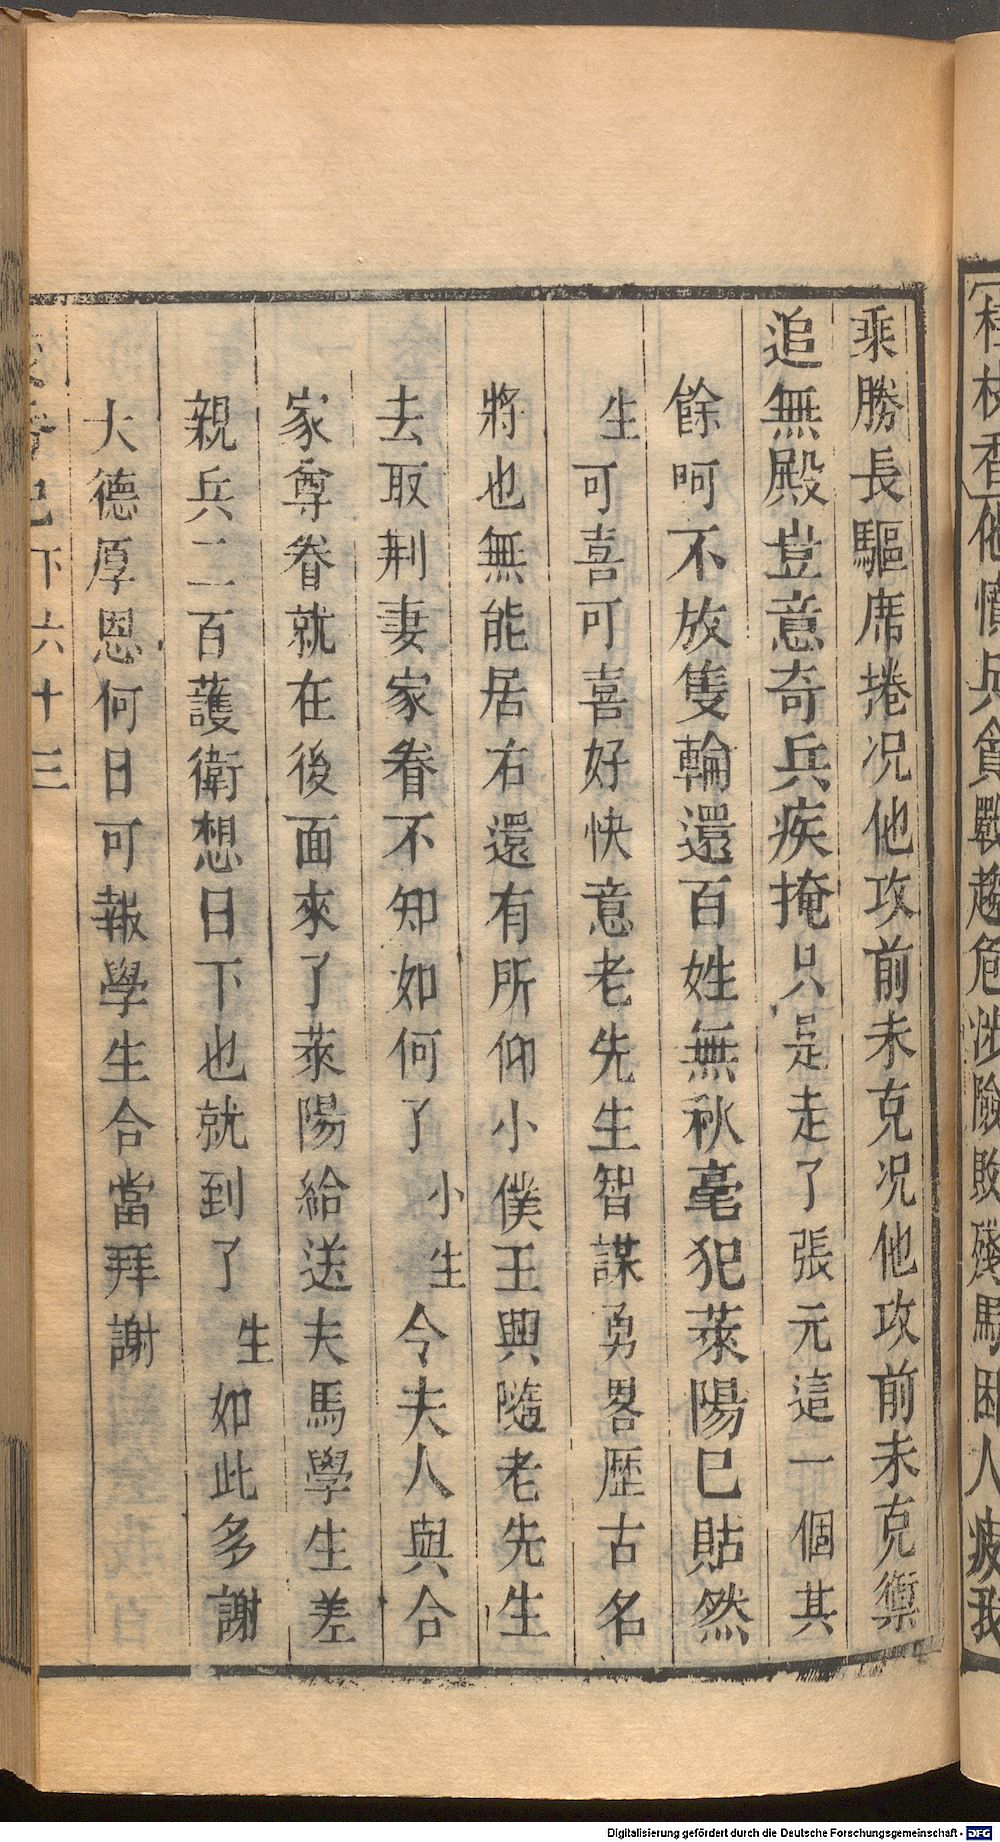 桂枝香他憤兵貪戰趨危涉險敗殘馬困人疲我
乘勝長驅席捲况他攻前未克况他攻前未克禦
追無殿豈意奇兵疾掩只是走了張元這一個其
餘呵不放隻輪還百姓無秋毫犯萊陽已貼然
生可喜可喜好快意老先生智謀勇畧歷古名
將也無能居右還有所仰小僕王興隨老先生
去取荆妻家眷不知如何了小生令夫人與合
家尊眷就在後面來了萊陽給送夫馬學生差
親兵二百護衛想日下也就到了生如此多謝
大德厚恩何日可報學生合當拜謝
香記下六十三
Digitalisierung gefördert durch die Deutsche Forschungsgemeinschaft - DFG